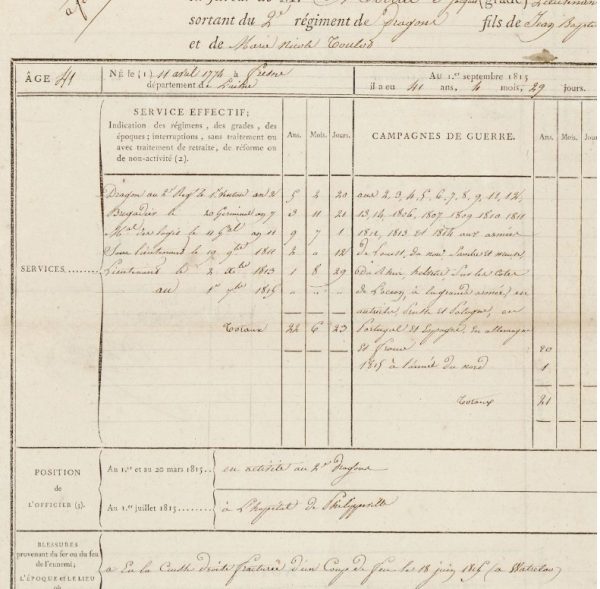 sortant du 2e régiment de Dragons fils de Jean Baptis
et de Marie Nicole Toulod
ÂGE 41
Né le (1) 11 avril 1774 à
département de
Au 1.er septembre 1815
il a eu 41 ans, 4 mois, 29 jours.
SERVICE EFFECTIF;
Indication des régimens, des grades, des
époques; interruptions, sans traitement ou
avec traitement de retraite, de réforme ou
de non-activité (2).
Ans. Mois. Jours.
CAMPAGNES DE GUERRE.
Ans. Mois. Jours
SERVICES
Dragon au 2e Regt le 1er an 2 5 2 20
Brigadier le 20 Germinal an 7 3 11 21
Mal des logis le 11 an 11 9 7 1
Sous Lieutenant le 19 1811 2 " 12
Lieutenant le 2 Xbre 1813 1 8 29
au 1er 7bre 1815 " " "
Totaux 22 6 23
aux 2, 3, 4, 5, 6, 7, 8, 9, 11, 12,
13, 14, 1806, 1807 1809 1810 1811
1812, 1813 et 1814 aux armées
de L'ouest, du nord, Sambre et meuse,
du Rhin, Sur les Cotes
de L'océan, à la grande armée, en
autriche, Prusse et Pologne, en
Portugal et Espagne, en allemagne
et France 20
1815 à l'armée du nord 1
Totaux 21
POSITION
de
L'OFFICIER (3).
Au 1.er et au 20 mars 1815.. en activité au 2e Dragons
Au 1.er juillet 1815.... à L'hopital de Philippeville
BLESSURES
provenant du fer ou du feu
de l'ennemi;
L'ÉPOQUE et LE LIEU
a Eu la Cuisse droite fracturée d'un Coup de feu le 18 juin 1815 (a Waterloo)